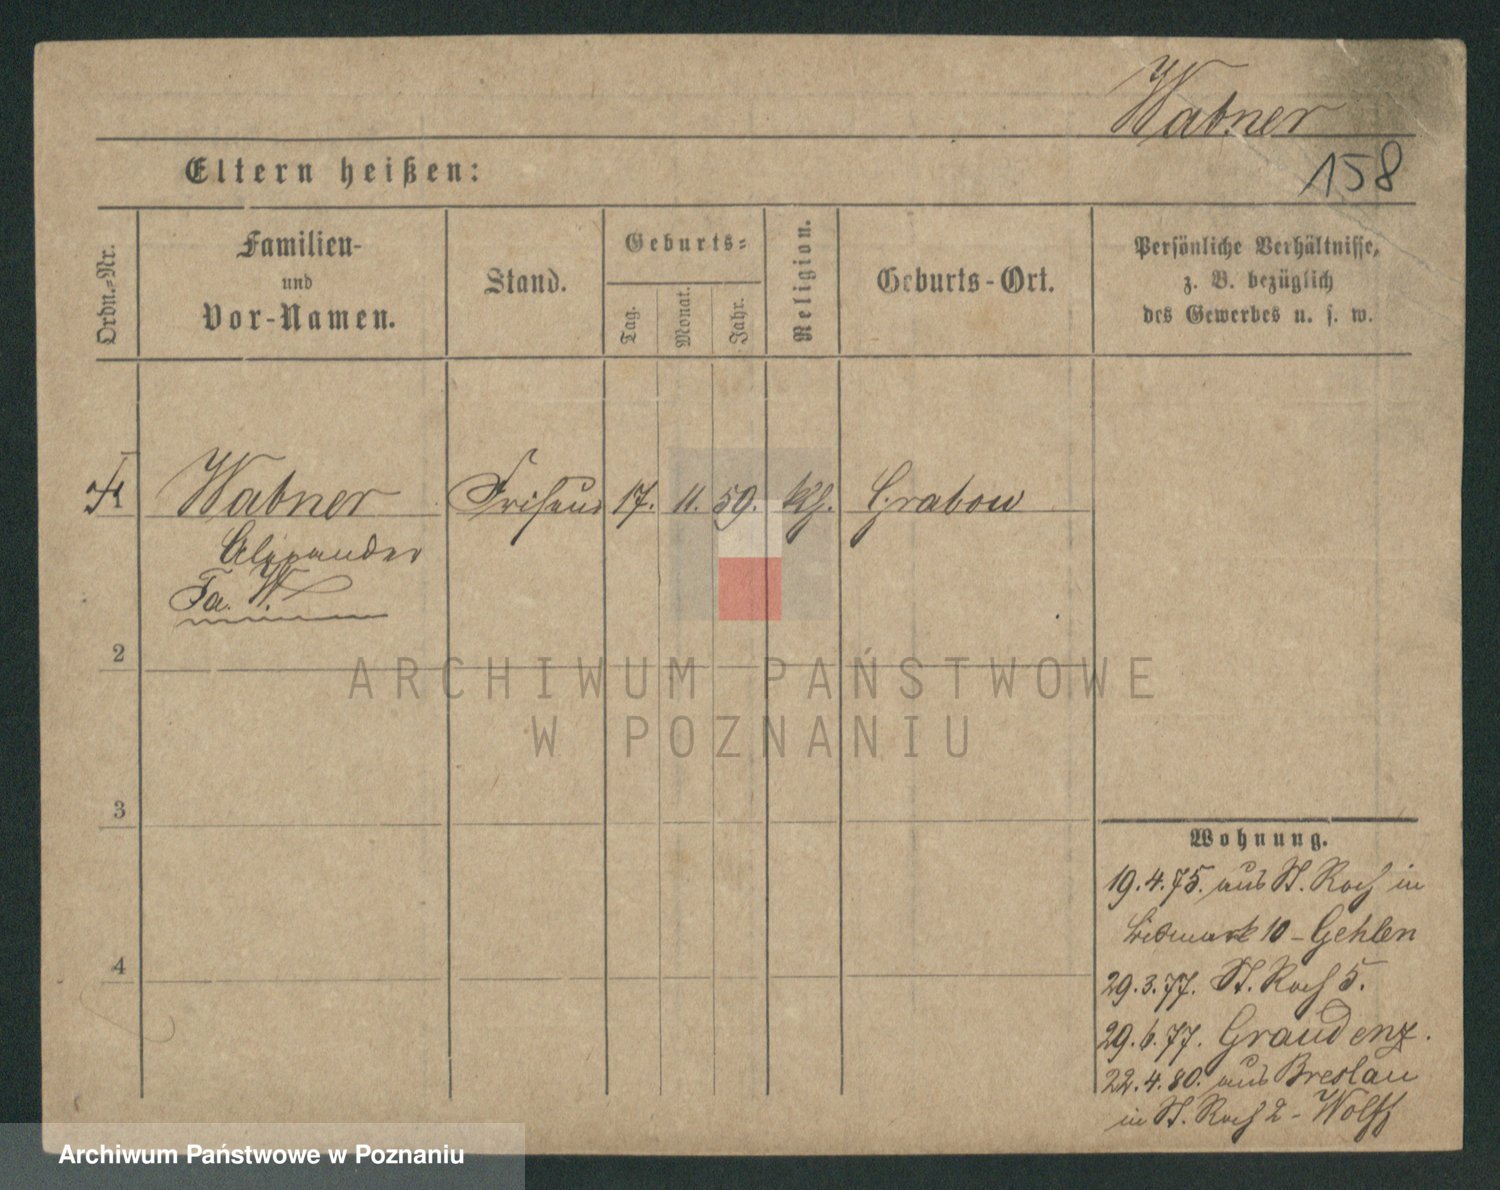 Wabner
158
Eltern heißen:
Ordn.-Nr.
Familien-
und
Vor-Namen.
Stand.
Geburts-
Tag.
Monat.
Jahr.
Religion.
Geburts-Ort.
Persönliche Verhältnisse,
z. B. bezüglich
des Gewerbes u. s. w.
Wabner Friseur 17. 11. 59. Kth. Grabow
Alexander
Fa. W.
2
3
4
Wohnung.
19.4.75. aus St. Roch in
10 - Gehlen
29.3.77. St. Roch 5.
29.6.77. Graudenz.
22.4.80. aus Breslau
in St. Roch 2 - Wolff
ARCHIWUM PAŃSTWOWE
W POZNANIU
Archiwum Państwowe w Poznaniu